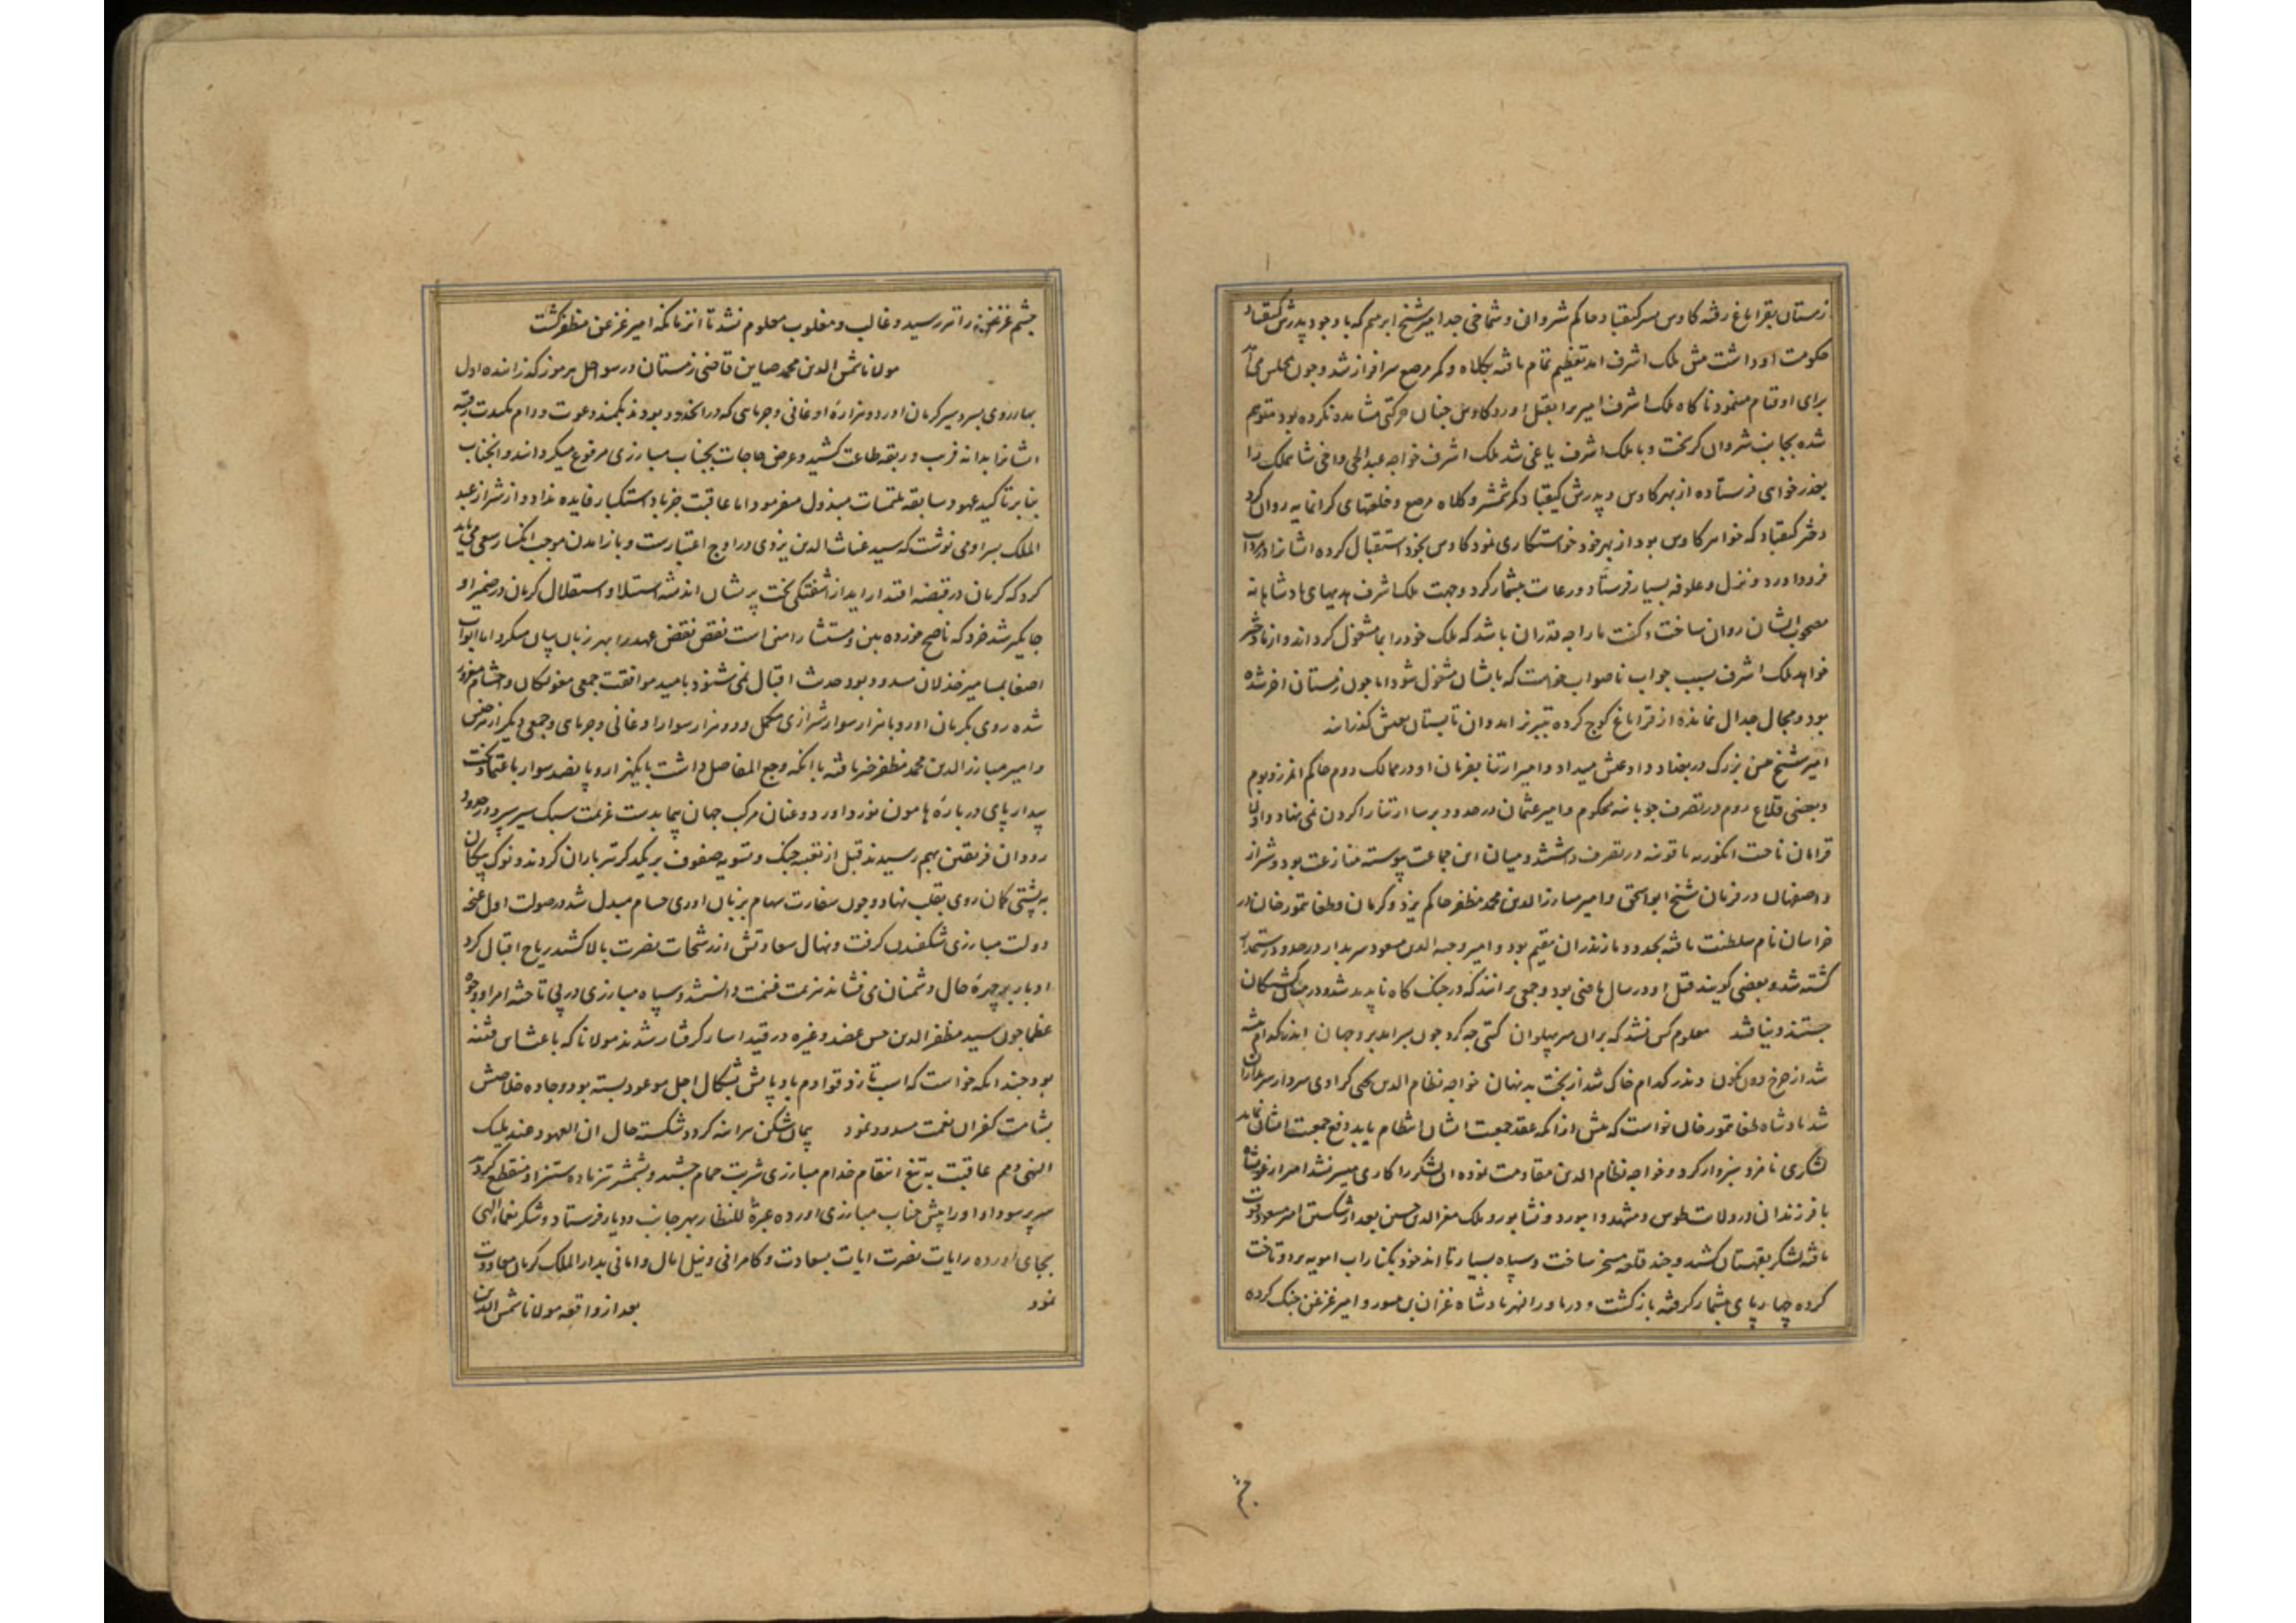 زمستان بقراباغ رفته کاوس پسر کیقباد حاکم شروان و شماخی جد امیر شیخ ابرهیم که با وجود پدرش کیقباد
حکومت او داشت پیش ملک اشرف امد تعظیم تمام یافته بکلاه و کمر مرصع سرافراز شد و چون بمجلس می آمد
برای او قیام مینمود ناکاه ملک اشرف امیر را بقتل اورد کاوس چنان حرکتی مشاهده نکرده بود متوهم
شده بجانب شروان کریخت و با ملک اشرف یاغی شد ملک اشرف خواجه عبدالحی و اخی شاهملک را
بعذرخواهی فرستاده از بهر کاوس و پدرش کیقباد کمر شمشیر و کلاه مرصع و خلعتهای کرانمایه روان کرد
دختر کیقباد که خواهر کاوس بود از بهر خود خواستکاری نمود کاوس بخود استقبال کرده ایشانرا
فرود اورد و نزل و علوفه بسیار فرستاد و رعایت بیشمار کرد و جهت ملک اشرف هدیهای پادشاهانه
مصحوب ایشان روان ساخت و کفت ما را چه قدر ان باشد که ملک خود را بما مشغول کرداند و از ما دختر
خواهد ملک اشرف بسبب جواب ناصواب خواست که بایشان مشغول شود اما چون زمستان اخر شده
بود و مجال جدال نمانده از قراباغ کوچ کرده بتبریز امد و ان تابستان بعیش کذرانید
امیر شیخ حسن بزرک در بغداد داد عیش میداد و امیر ارتنا بفرمان او در ممالک روم حاکم انمرز و بوم
و بعضی قلاع روم در تصرف چوپانیه محکوم و امیر عثمان در حدود برسا ارتنا را کردن نمی نهاد و اولاد
قرامان ناحیت انکوریه تا قونیه در تصرف داشتند و میان این جماعت پیوسته منازعت بود و شیراز
و اصفهان در فرمان شیخ ابواسحق و امیر مبارزالدین محمد مظفر حاکم یزد و کرمان و طغاتمورخان در
خراسان نام سلطنت یافته بحدود مازندران مقیم بود و امیر وجیه الدین مسعود سربدار در حدود رستمدار
کشته شد و بعضی کویند قتل او در سال ماضی بود و جمعی برانند که در جنک کاه ناپدید شد و در میان کشتکان
جستند و نیافتند معلوم کس نشد که بران سر پهلوان کیتی چه کرد چون بسرامد برو جهان اندر کدام بیشه
شد از چرخ دون نکون و ندر کدام خاک شد از بخت بد نهان خواجه نظام الدین یحیی کراوی سردار سربداران
شد پادشاه طغاتمورخان خواست که پیش از انکه عقد جمعیت ایشان انتظام یابد دفع جمعیت ایشان نماید
لشکری نامزد سبزوار کرد و خواجه نظام الدین مقاومت نموده ان لشکر را کاری میسر نشد امیر ارغونشاه
با فرزندان در ولایت طوس و مشهد و ابیورد و نشابور و ملک معزالدین حسین بعد از شکستن امیر مسعود قوت
یافته لشکر بقهستان کشید و چند قلعه مسخر ساخت و سپاه بسیار تا اندخود بکنار اب امویه برد و تاخت
کرده چهارپای بیشمار کرفته بازکشت و در ماوراالنهر پادشاه غزان بن یسور و امیر غزغن جنک کرده
چشم
چشم غزغن را تیر رسید و غالب و مغلوب معلوم نشد تا انزمانکه امیر غزغن مظفر کشت
مولانا شمس الدین محمد صاین قاضی زمستان در سواحل هرموز کذرانیده اول
بهار روی بسردسیر کرمان اورد و هزاره اوغانی و جرمایی که در انحدود بودند بکمند دعوت و دام مکیدت رقبه
ایشانرا بدانه فریب در ربقه طاعت کشید و عرض حاجات بجناب مبارزی مرفوع میکردانید و انجناب
بنابر تاکید عهود سابقه ملتمسات مبذول میفرمود اما عاقبت جز باد استکبار فایده نداد و از شیراز عمید
الملک پسر او می نوشت که سید غیاث الدین یزدی در اوج اعتبارست و بازامدن موجب انکسار سعی می باید
کرد که کرمان در قبضه اقتدار اید از اشفتکی بخت پریشان اندیشه استیلا و استقلال کرمان در ضمیر او
جایکیر شد خرد که ناصح خورده بین و مستشار امین است نقص نقض عهد را بهر زبان بیان میکرد اما ابواب
اصغا بمسامیر خذلان مسدود بود حدیث اقبال نمی شنود بامید موافقت جمعی مغولکان و احشام مغرور
شده روی بکرمان اورد با هزار سوار شیرازی مکمل و دو هزار سوار اوغانی و جرمایی و جمعی دیکر از هر جنس
و امیر مبارزالدین محمد مظفر خبر یافته با انکه وجع المفاصل داشت با یکهزار و پانصد سوار باعتماد بخت
بیدار پای در باره هامون نورد اورد و عنان مرکب جهان پیما بدست عزیمت سبک سیر سپرد و در حدود
رودان فریقین بهم رسیدند قبل از تعبیه جنک و تسویه صفوف بر یکدیکر تیرباران کردند و نوک پیکان
به پشتی کمان روی بقلب نهاد و چون سفارت سهام بزبان اوری حسام مبدل شد در صولت اول غنچه
دولت مبارزی شکفیدن کرفت و نهال سعادتش از رشحات نصرت بالا کشید ریاح اقبال کرد
ادبار بر چهره حال دشمنان می فشاند هزیمت غنیمت دانستند و سپاه مبارزی در پی تاخته امرا و وجوه
عظما چون سید مظفرالدین حسن عضد و غیره در قید اسار کرفتار شدند مولانا که باعث این فتنه
بود چندانکه خواست که اسب تازد قوادم بادپایش بشکال اجل موعود بسته بود و جاده خلاصش
بشامت کفران نعمت مسدود نمود پیمان شکن هراینه کردد شکسته حال ان العهود عند ملیک
النهی ذمم عاقبت به تیغ انتقام خدام مبارزی شربت حمام چشید و بشمشیر تیز ماده ستیز او منقطع کردید
سر پرسودا او را پیش جناب مبارزی اورده عبرة للنظار بهر جانب و دیار فرستاد و شکر نعماء الهی
بجای اورده رایات نصرت ایات بسعادت و کامرانی و نیل امال و امانی بدارالملک کرمان معاودت
نمود بعد از واقعه مولانا شمس الدین